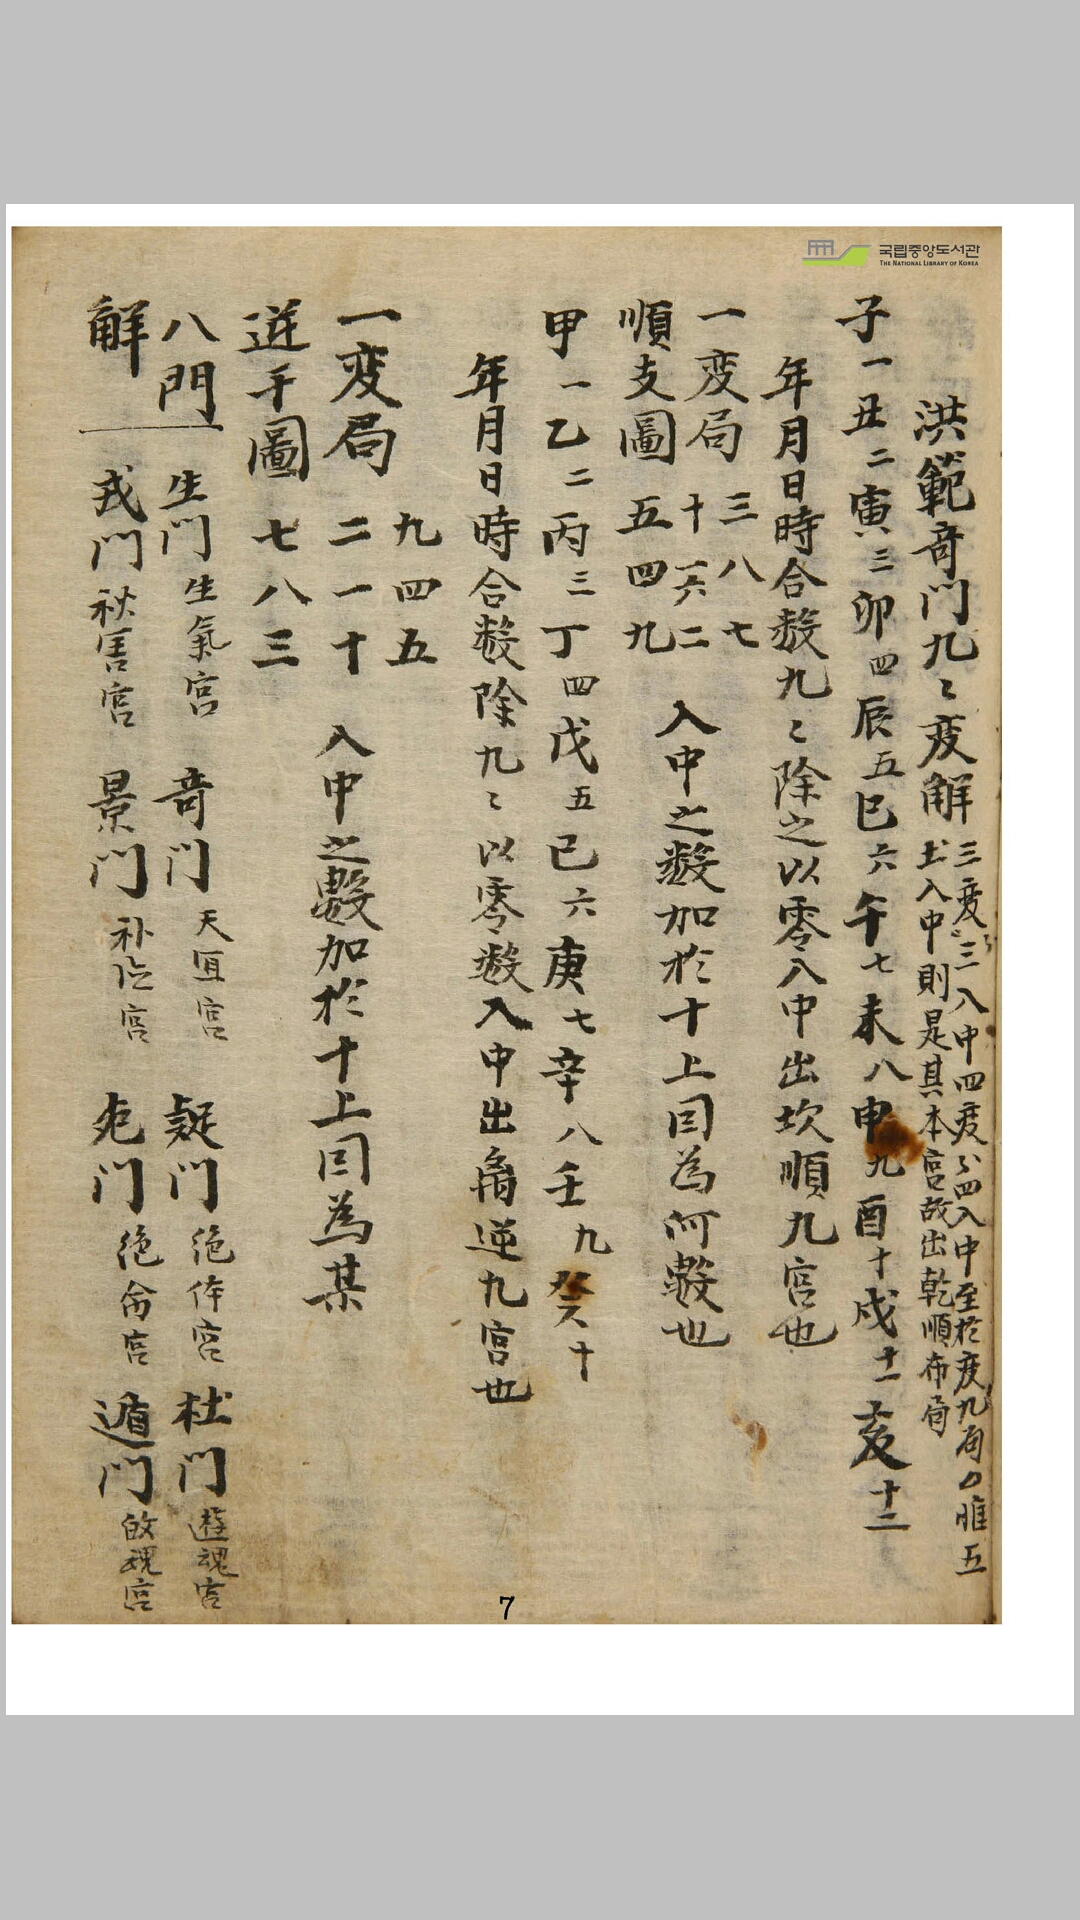 국립중앙도서관
THE NATIONAL LIBRARY OF KOREA
洪範奇門九〻変解
三変〻三入中四変〻四入中至於変九局 唯五
土入中則是其本宮故出乾順布局
子一丑二寅三卯四辰五巳六午七未八申九酉十戌十一亥十二
年月日時合数九〻除之以零入中出坎順九宮也
一変局
順支圖
三八七
十一六二
五四九
入中之数加於十上因為何数也
甲一乙二丙三丁四戊五己六庚七辛八壬九癸十
年月日時合数除九〻以零数入中出离逆九宮也
一変局
逆干圖
九四五
二一十
七八三
入中之數加於十上因為某
八門
解
生門 生氣宮 奇門 天宜宮 疑門 絶体宮 杜門 遊魂宮
戎門 禍害宮 景門 福德宮 死門 絶命宮 遁門 魂宮
7